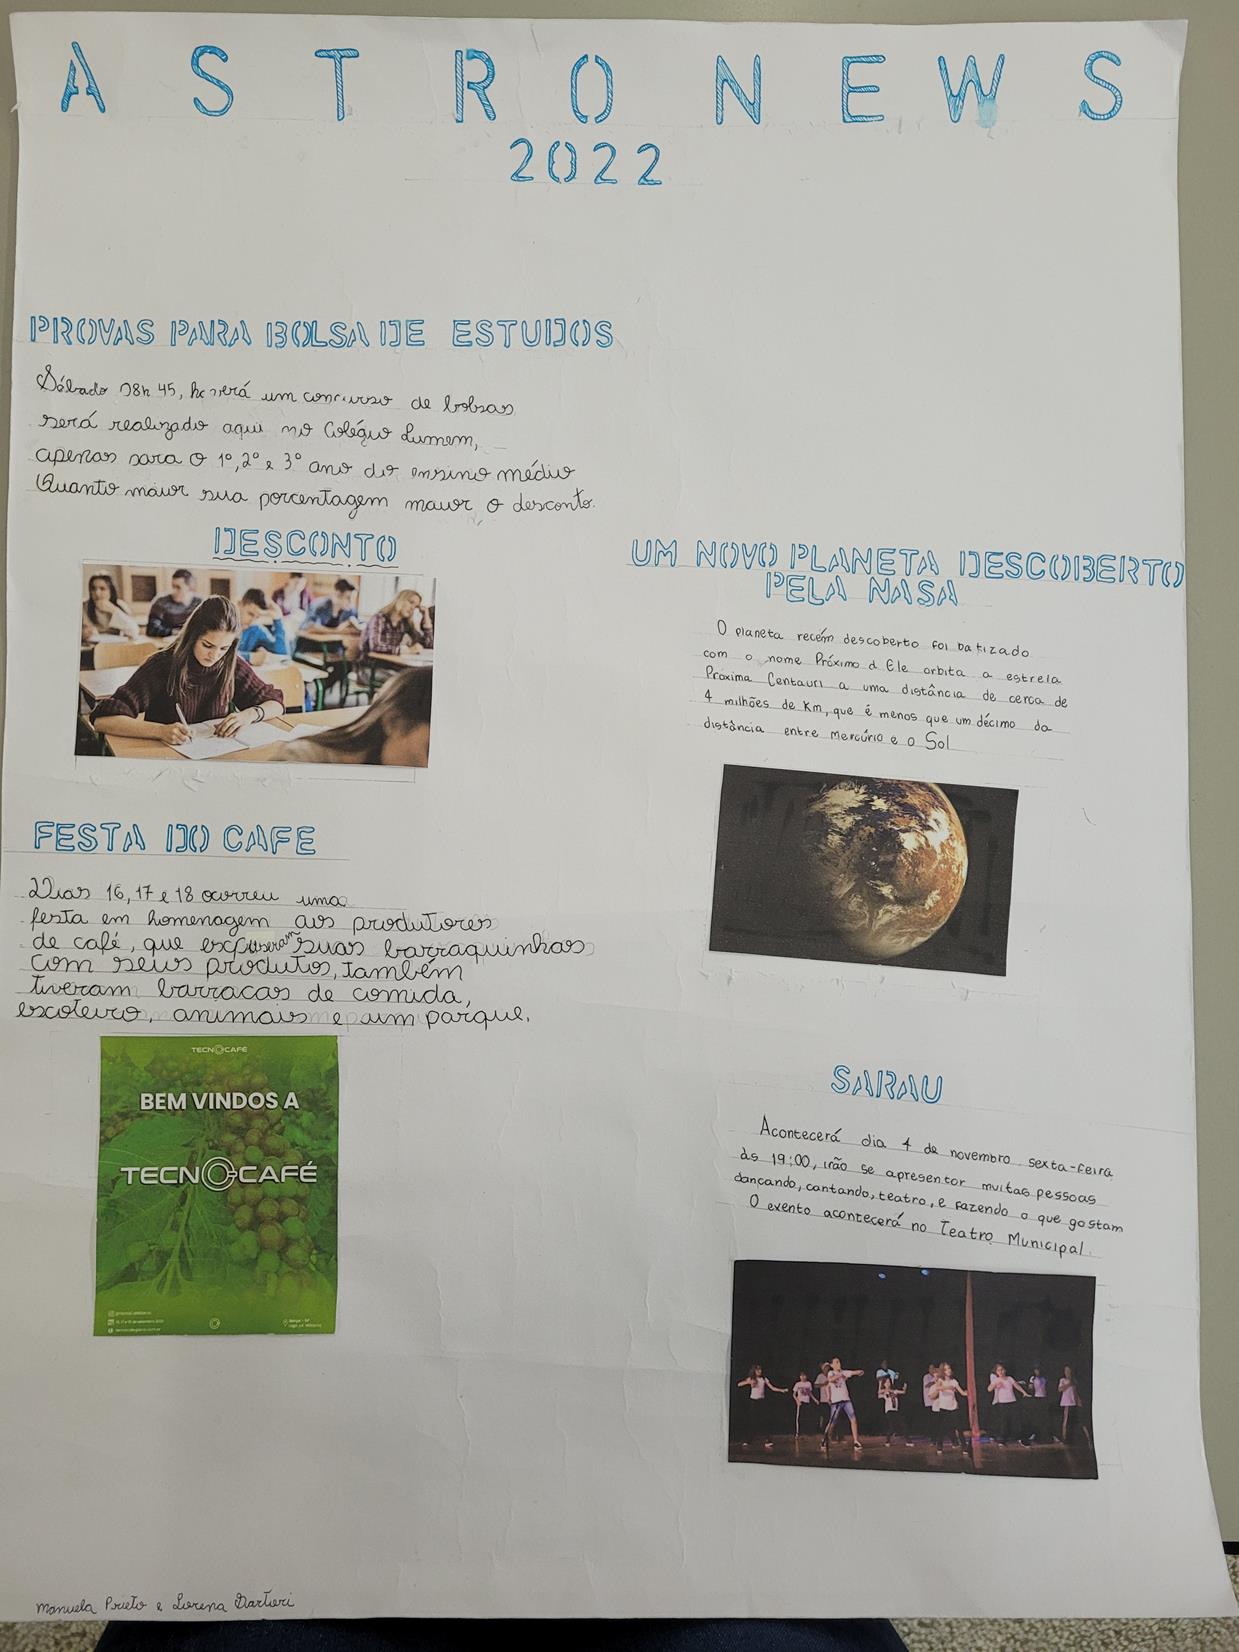 ASTRO NEWS
2022
PROVAS PARA BOLSA DE ESTUDOS
Sábado 08h 45, haverá um concurso de bolsas
será realizado aqui no Colégio Lumem,
apenas para o 1º, 2º e 3º ano do ensino médio
Quanto maior sua porcentagem maior o desconto.
DESCONTO
FESTA DO CAFE
Dias 16, 17 e 18 ocorreu uma
festa em homenagem aos produtores
de café, que expuseram suas barraquinhas
com seus produtos, também
tiveram barracas de comida,
escoteiro, animais e um parque.
TECNOCAFÉ
BEM VINDOS A
TECNOCAFÉ
UM NOVO PLANETA DESCOBERTO
PELA NASA
O planeta recém descoberto foi batizado
com o nome Próximo d Ele orbita a estrela
Próxima Centauri a uma distância de cerca de
4 milhões de Km, que é menos que um décimo da
distância entre Mercúrio e o Sol
SARAU
Acontecerá dia 4 de novembro sexta-feira
às 19:00, irão se apresentar muitas pessoas
dançando, cantando, teatro, e fazendo o que gostam
O evento acontecerá no Teatro Municipal.
Manuela Prieto e Lorena